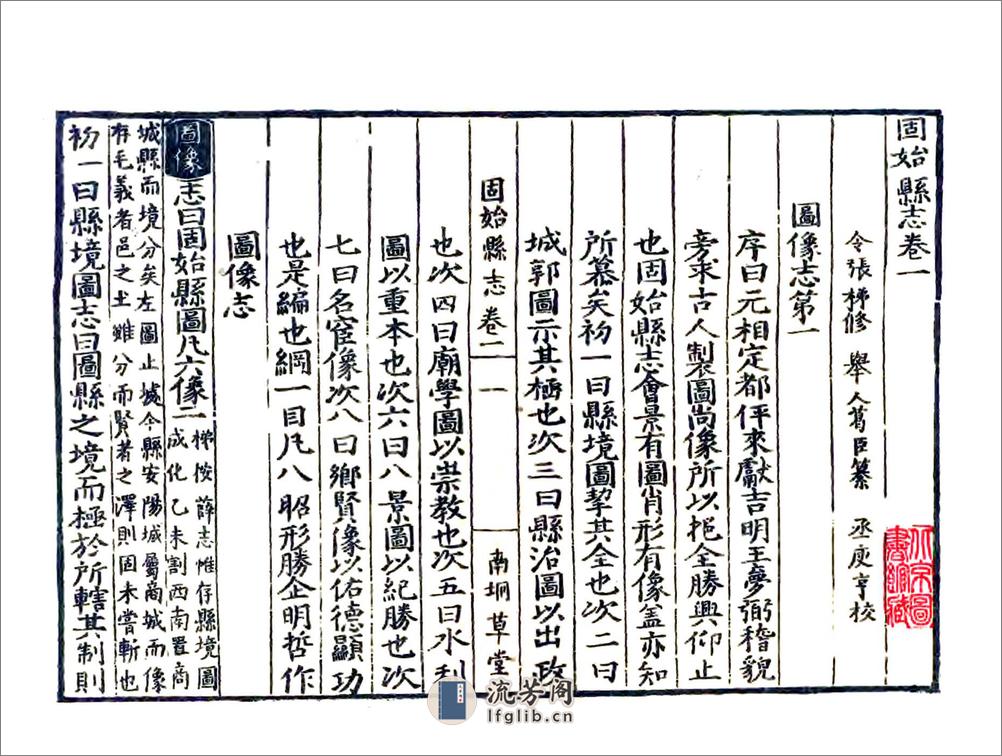 固始縣志卷一
令張梯修 舉人葛臣纂 丞庾亨校
圖像志第一
序曰元相定都伻來獻吉明王夢弼稽貌
旁求古人製圖尚像所以挹全勝興仰止
也固始縣志會景有圖肖形有像盖亦知
所慕矣初一曰縣境圖挈其全也次二曰
城郭圖示其極也次三曰縣治圖以出政
固始縣志 卷一 一 南坰草堂
也次四曰廟學圖以崇教也次五曰水利
圖以重本也次六曰八景圖以紀勝也次
七曰名宦像次八曰鄉賢像以佑德顯功
也是編也綱一目凡八昭形勝企明哲作
圖像志
圖像志曰固始縣圖凡六像二
梯按薛志惟存縣境圖
成化乙未割西南置商
城縣而境分矣左圖止城今縣安陽城屬商城而像
存毛義者邑之土雖分而賢者之澤則固未嘗斬也
初一曰縣境圖志曰圖縣之境而極於所轄其制則
北京圖
書館藏
流芳阁
lfglib.cn